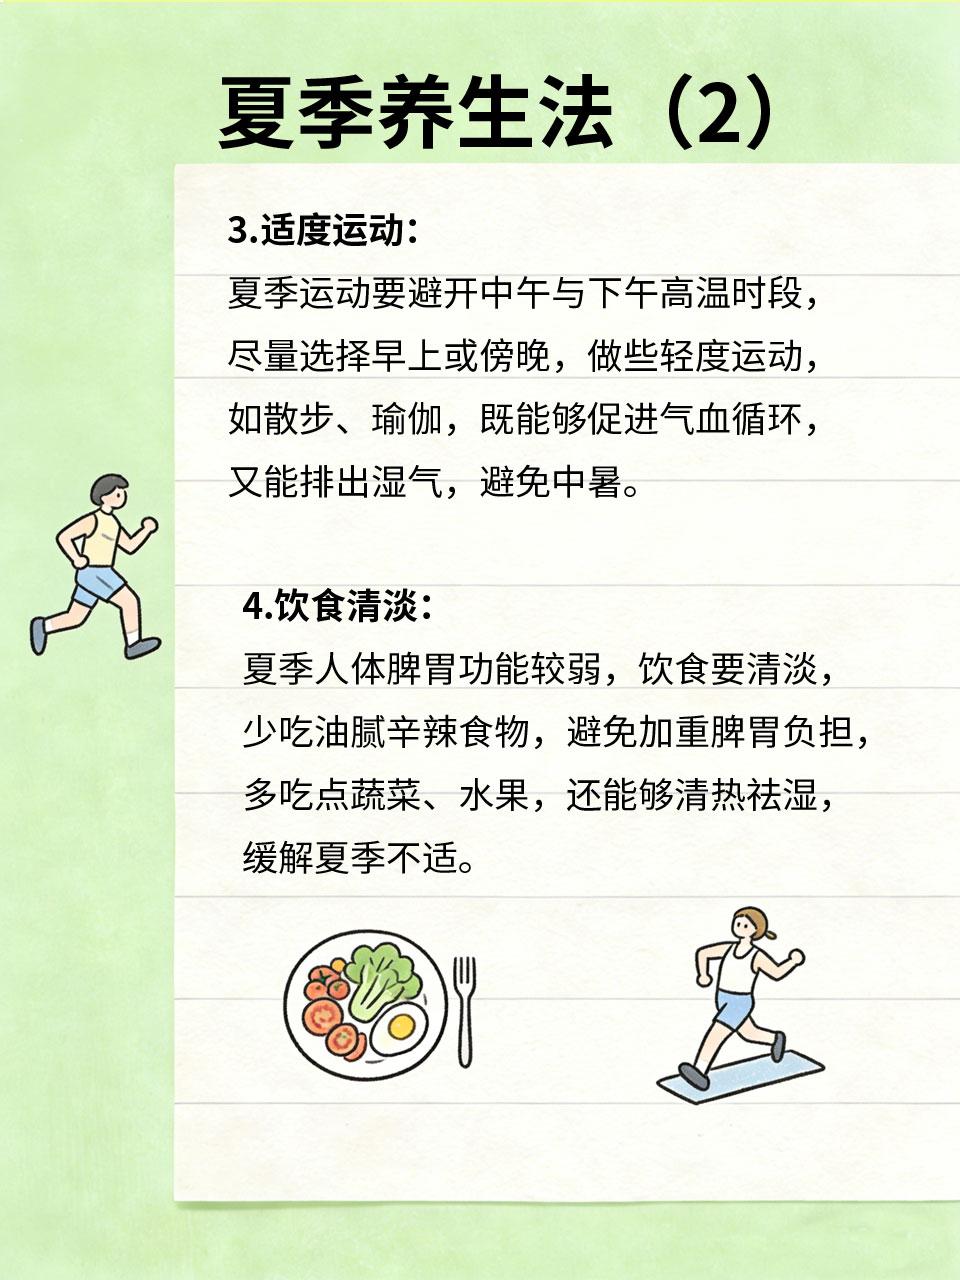 夏季养生法（2）
3.适度运动：
夏季运动要避开中午与下午高温时段，
尽量选择早上或傍晚，做些轻度运动，
如散步、瑜伽，既能够促进气血循环，
又能排出湿气，避免中暑。
4.饮食清淡：
夏季人体脾胃功能较弱，饮食要清淡，
少吃油腻辛辣食物，避免加重脾胃负担，
多吃点蔬菜、水果，还能够清热祛湿，
缓解夏季不适。